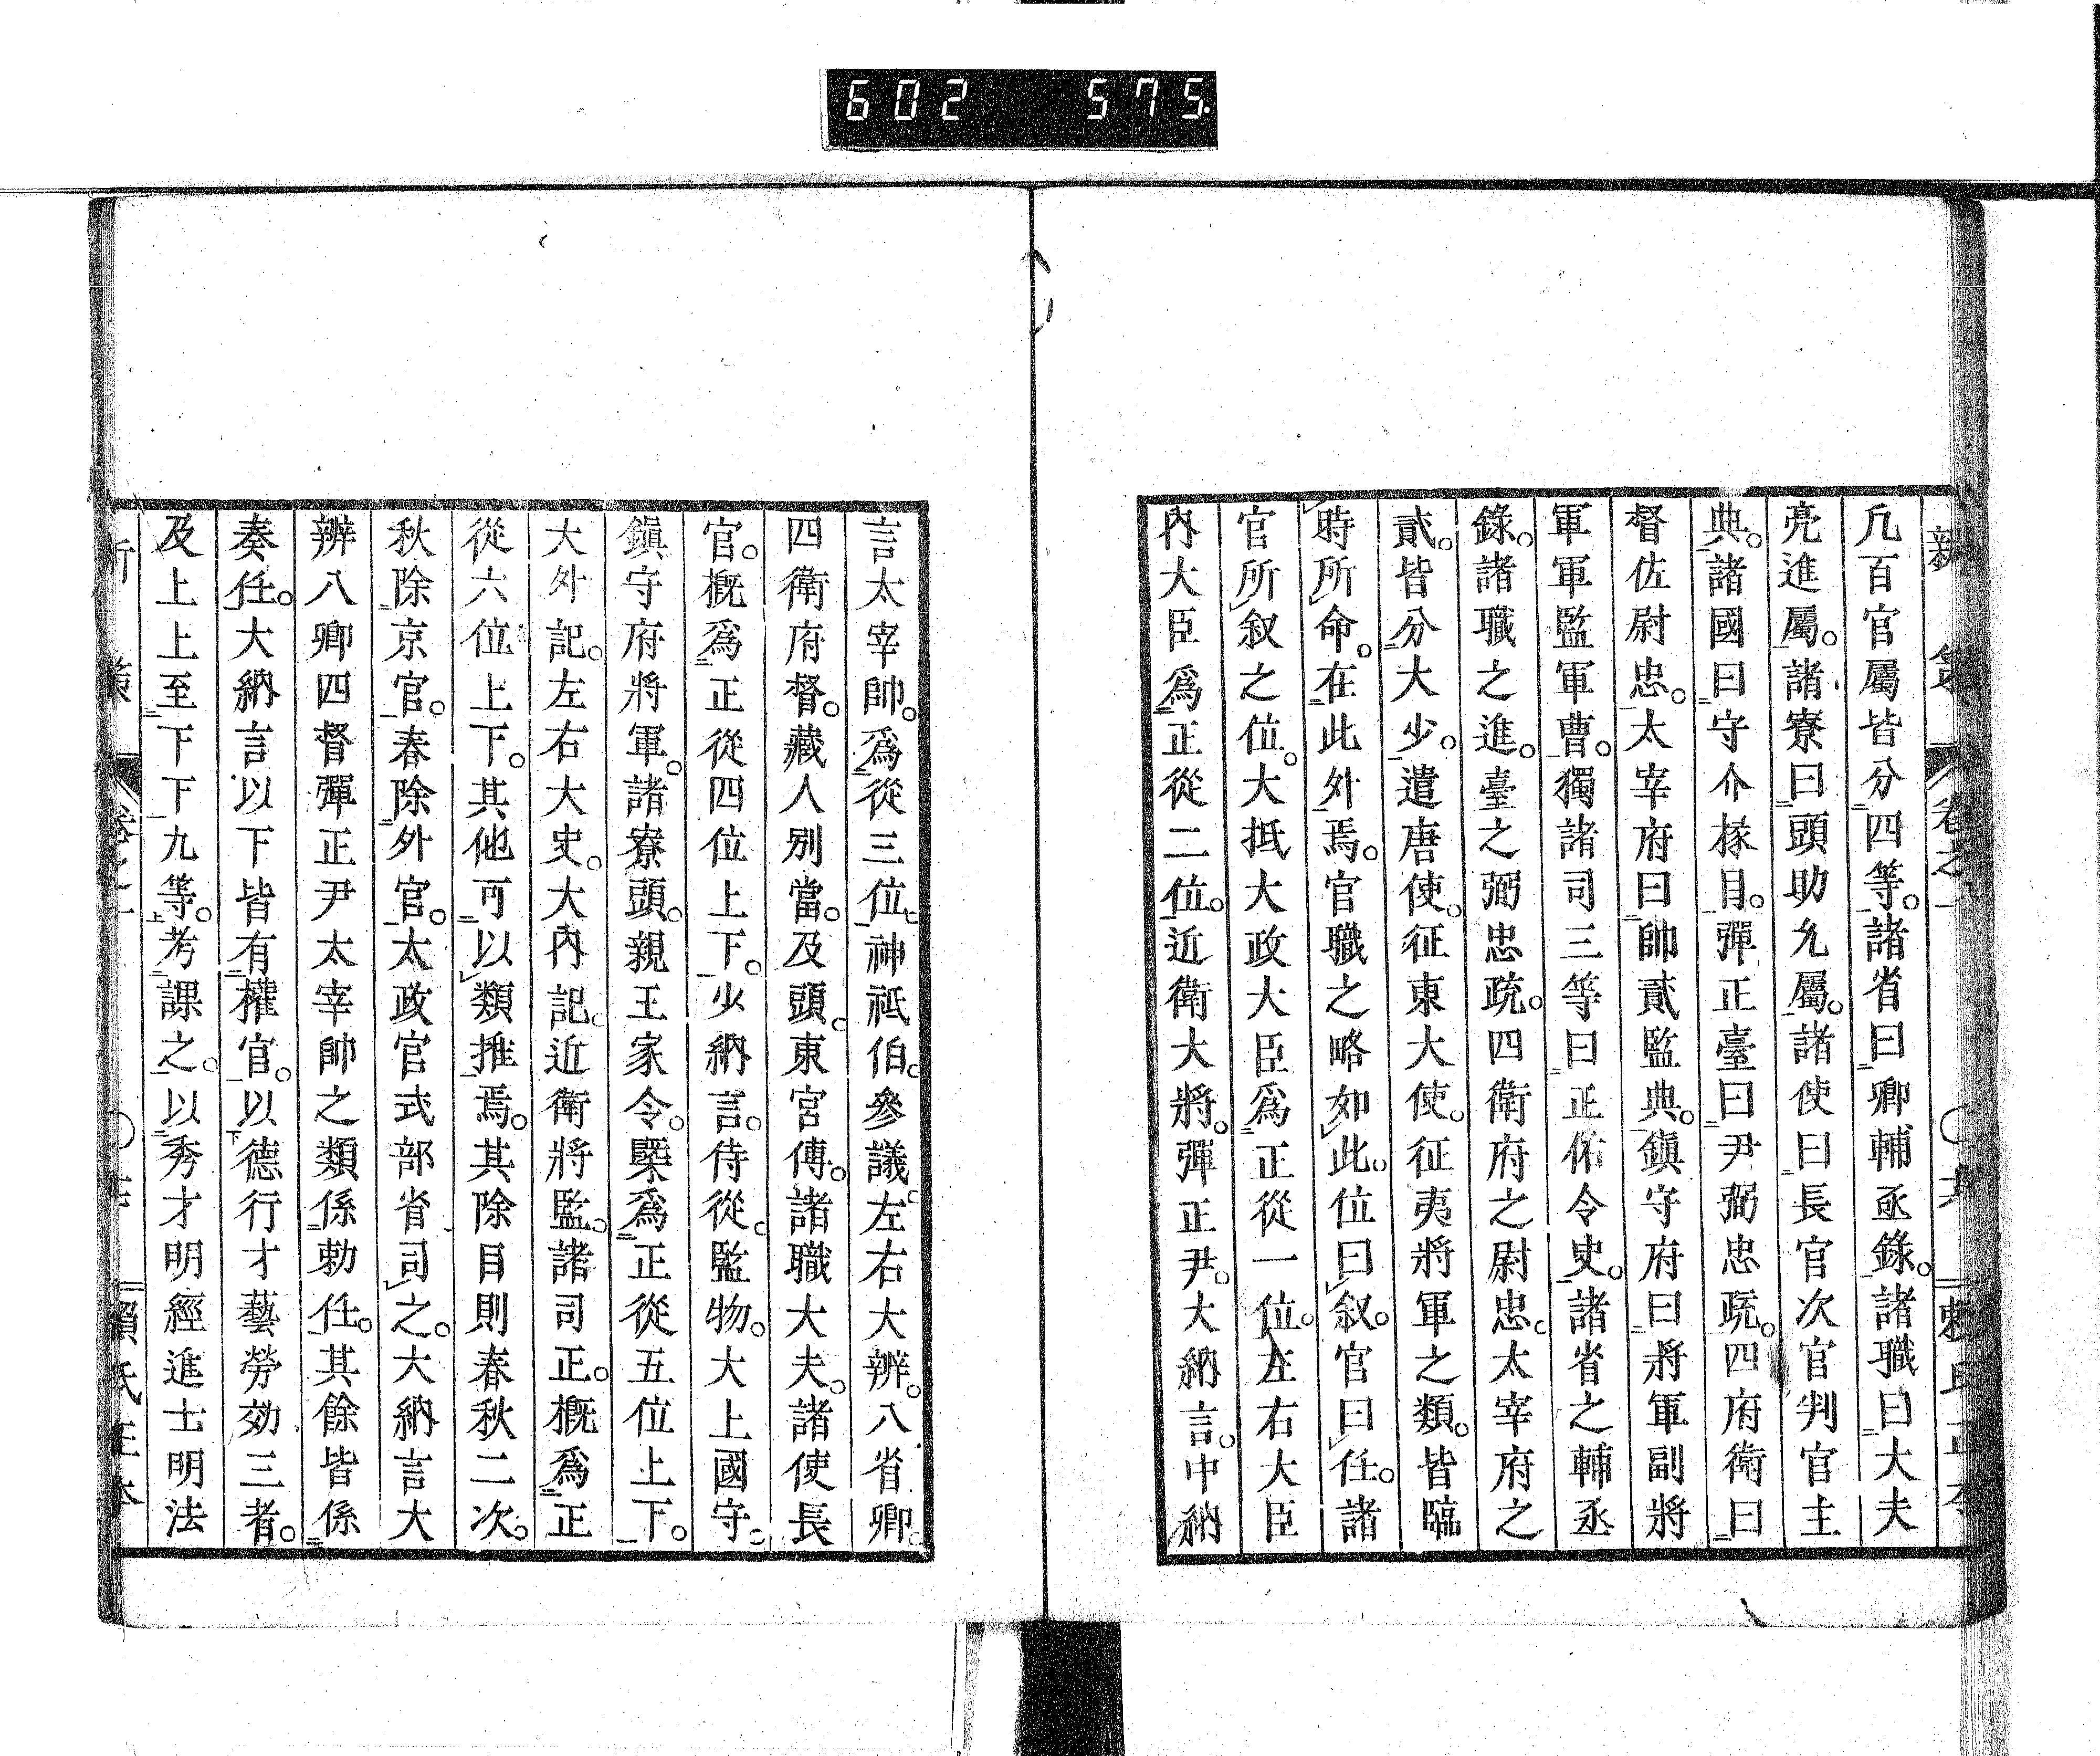 602 575.
凡百官屬皆分四等。諸省曰卿輔丞錄。諸職曰大夫
亮進屬。諸寮曰頭助允屬。諸使曰長官次官判官主
典。諸國曰守介掾目。彈正臺曰尹弼忠疏。四府衛曰
督佐尉忠。太宰府曰帥貳監典。鎭守府曰將軍副將
軍軍監軍曹。獨諸司三等曰正佑令史。諸省之輔丞
錄。諸職之進。臺之弼忠疏。四衛府之尉忠。太宰府之
貳。皆分大少。遣唐使。征東大使。征夷將軍之類。皆臨
時所命。在此外焉。官職之略如此。位曰叙。官曰任。諸
官所叙之位。大抵大政大臣爲正從一位。左右大臣
內大臣爲正從二位。近衛大將。彈正尹。大納言。中納
言太宰帥。爲從三位。神祇伯。參議。左右大辨。八省卿。
四衛府督。藏人別當。及頭。東宮傅。諸職大夫。諸使長
官。概爲正從四位上下。少納言。侍從。監物。大上國守。
鎭守府將軍。諸寮頭。親王家令。槩爲正從五位上下。
大外記。左右大史。大內記。近衛將監。諸司正。概爲正
從六位上下。其他可以類推焉。其除目則春秋二次。
秋除京官。春除外官。太政官式部省司之。大納言大
辨八卿四督彈正尹太宰帥之類係勅任。其餘皆係
奏任。大納言以下皆有權官。以德行才藝勞効三者。
及上上至下下九等。考課之。以秀才明經進士明法